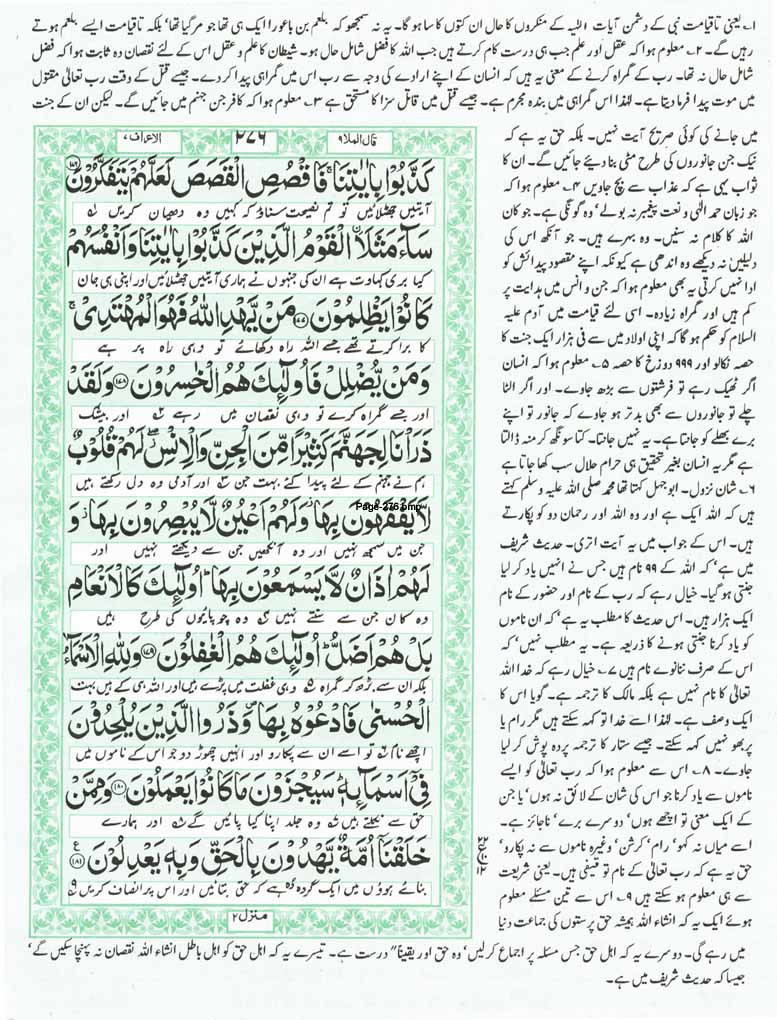 ۱۔ یعنی تاقیامت نبی کے دشمن آیات الٰہیہ کے منکروں کا حال ان کتوں کا سا ہو گا۔ یہ نہ سمجھو کہ بلعم بن باعورا ایک ہی تھا جو مر گیا تھا' بلکہ تاقیامت ایسے بلعم ہوتے
رہیں گے۔ ۲۔ معلوم ہوا کہ عقل اور علم جب ہی درست کام کرتے ہیں جب اللہ کا فضل شامل حال ہو۔ شیطان کا علم و عقل اس کے لئے نقصان دہ ثابت ہوا کہ فضل
شامل حال نہ تھا۔ رب کے گمراہ کرنے کے معنی یہ ہیں کہ انسان کے اپنے ارادے کی وجہ سے رب اس میں گمراہی پیدا کر دے۔ جیسے قتل کے وقت رب تعالیٰ مقتول
میں موت پیدا فرما دیتا ہے۔ لہٰذا اس گمراہی میں بندہ مجرم ہے۔ جیسے قتل میں قاتل سزا کا مستحق ہے ۳۔ معلوم ہوا کہ کافر جن جہنم میں جائیں گے۔ لیکن ان کے جنت
میں جانے کی کوئی صریح آیت نہیں۔ بلکہ حق یہ ہے کہ
نیک جن جانوروں کی طرح مٹی بنا دیئے جائیں گے۔ ان کا
ثواب یہی ہے کہ عذاب سے بچ جاویں ۴۔ معلوم ہوا کہ
جو زبان حمد الٰہی و نعت پیغمبر نہ بولے' وہ گونگی ہے۔ جو کان
اللہ کا کلام نہ سنیں۔ وہ بہرے ہیں۔ جو آنکھ اس کی
دلیلیں نہ دیکھے وہ اندھی ہے کیونکہ اپنے مقصود پیدائش کو
ادا نہیں کرتی یہ بھی معلوم ہوا کہ جن و انس میں ہدایت پر
کم ہیں اور گمراہ زیادہ۔ اسی لئے قیامت میں آدم علیہ
السلام کو حکم ہو گا کہ اپنی اولاد میں سے فی ہزار ایک جنت کا
حصہ نکالو اور ۹۹۹ دوزخ کا حصہ ۵۔ معلوم ہوا کہ انسان
اگر ٹھیک رہے تو فرشتوں سے بڑھ جاوے۔ اور اگر الٹا
چلے تو جانوروں سے بھی بد تر ہو جاوے کہ جانور تو اپنے
برے بھلے کو جانتا ہے۔ یہ نہیں جانتا۔ کتا سونگھ کر منہ ڈالتا
ہے مگر یہ انسان بغیر تحقیق ہی حرام حلال سب کھا جاتا ہے
۶۔ شان نزول۔ ابوجہل کہتا تھا محمد صلی اللہ علیہ وسلم کہتے
ہیں کہ اللہ ایک ہے اور وہ اللہ اور رحمان دو کو پکارتے
ہیں۔ اس کے جواب میں یہ آیت اتری۔ حدیث شریف
میں ہے' کہ اللہ کے ۹۹ نام ہیں جس نے انہیں یاد کر لیا
جنتی ہو گیا۔ خیال رہے کہ رب کے نام اور حضور کے نام
ایک ہزار ہیں۔ اس حدیث کا مطلب یہ ہے' کہ ان ناموں
کو یاد کرنا جنتی ہونے کا ذریعہ ہے۔ یہ مطلب نہیں' کہ
اس کے صرف ننانوے نام ہیں ۷۔ خیال رہے کہ خدا اللہ
تعالیٰ کا نام نہیں ہے بلکہ مالک کا ترجمہ ہے۔ گویا اس کا
ایک وصف ہے۔ لہٰذا اسے خدا تو کہہ سکتے ہیں مگر رام یا
پربھو نہیں کہہ سکتے۔ جیسے ستار کا ترجمہ پردہ پوش کر لیا
جاوے۔ ۸۔ اس سے معلوم ہوا کہ رب تعالیٰ کو ایسے
ناموں سے یاد کرنا جو اس کی شان کے لائق نہ ہوں' یا جن
کے ایک معنی تو اچھے ہوں' دوسرے برے' ناجائز ہے۔
اسے میاں نہ کہو' رام' کرشن' وغیرہ ناموں سے نہ پکارو'
حق یہ ہے کہ رب تعالیٰ کے نام تو قیفی ہیں۔ یعنی شریعت
سے ہی معلوم ہو سکتے ہیں ۹۔ اس سے تین مسئلے معلوم
ہوئے ایک یہ کہ انشاء اللہ ہمیشہ حق پرستوں کی جماعت دنیا
میں رہے گی۔ دوسرے یہ کہ اہل حق جس مسئلہ پر اجماع کر لیں' وہ حق اور یقیناً" درست ہے۔ تیسرے یہ کہ اہل حق کو اہل باطل انشاء اللہ نقصان نہ پہنچا سکیں گے'
جیسا کہ حدیث شریف میں ہے۔
قال الملا۹ ۲۷۶ الاعراف۷
كَذَّبُوْا بِاٰيٰتِنَا ۚ فَاقْصُصِ الْقَصَصَ لَعَلَّهُمْ يَتَفَكَّرُوْنَ ﴿۱۷۶﴾
آیتیں جھٹلائیں تو تم نصیحت سناؤ کہ کہیں وہ دھیان کریں
سَآءَ مَثَلَا ۨ الْقَوْمُ الَّذِيْنَ كَذَّبُوْا بِاٰيٰتِنَا وَاَنْفُسَهُمْ
کیا بری کہاوت ہے ان کی جنہوں نے ہماری آیتیں جھٹلائیں اور اپنی ہی جان
كَانُوْا يَظْلِمُوْنَ ﴿۱۷۷﴾ مَنْ يَّهْدِ اللّٰهُ فَهُوَ الْمُهْتَدِيْ ۚ
کا برا کرتے تھے جسے اللہ راہ دکھائے تو وہی راہ پر ہے
وَمَنْ يُّضْلِلْ فَاُولٰٓئِكَ هُمُ الْخٰسِرُوْنَ ﴿۱۷۸﴾ وَلَقَدْ
اور جسے گمراہ کرے تو وہی نقصان میں رہے اور بیشک
ذَرَاْنَا لِجَهَنَّمَ كَثِيْرًا مِّنَ الْجِنِّ وَالْاِنْسِ ۖ لَهُمْ قُلُوْبٌ
ہم نے جہنم کے لئے پیدا کئے بہت جن اور آدمی وہ دل رکھتے ہیں
لَّا يَفْقَهُوْنَ بِهَا ۡ وَلَهُمْ اَعْيُنٌ لَّا يُبْصِرُوْنَ بِهَا ۡ وَ
Page-276.bmp
جن میں سمجھ نہیں اور وہ آنکھیں جن سے دیکھتے نہیں اور
لَهُمْ اٰذَانٌ لَّا يَسْمَعُوْنَ بِهَا ؕ اُولٰٓئِكَ كَالْاَنْعَامِ
وہ کان جن سے سنتے نہیں وہ چوپائیوں کی طرح ہیں
بَلْ هُمْ اَضَلُّ ؕ اُولٰٓئِكَ هُمُ الْغٰفِلُوْنَ ﴿۱۷۹﴾ وَلِلّٰهِ الْاَسْمَآءُ
بلکہ ان سے بڑھ کر گمراہ وہی غفلت میں پڑے ہیں اور اللہ ہی کے ہیں بہت
الْحُسْنٰى فَادْعُوْهُ بِهَا ۖ وَذَرُوا الَّذِيْنَ يُلْحِدُوْنَ
اچھے نام تو اسے ان سے پکارو اور انہیں چھوڑ دو جو اس کے ناموں میں
فِيْٓ اَسْمَآئِهٖ ؕ سَيُجْزَوْنَ مَا كَانُوْا يَعْمَلُوْنَ ﴿۱۸۰﴾ وَمِمَّنْ
حق سے نکلتے ہیں وہ جلد اپنا کیا پائیں گے اور ہمارے
خَلَقْنَآ اُمَّةٌ يَّهْدُوْنَ بِالْحَقِّ وَبِهٖ يَعْدِلُوْنَ ﴿۱۸۱﴾
بنائے ہوؤں میں ایک گروہ وہ ہے کہ حق بتائیں اور اس پر انصاف کریں
منزل۲